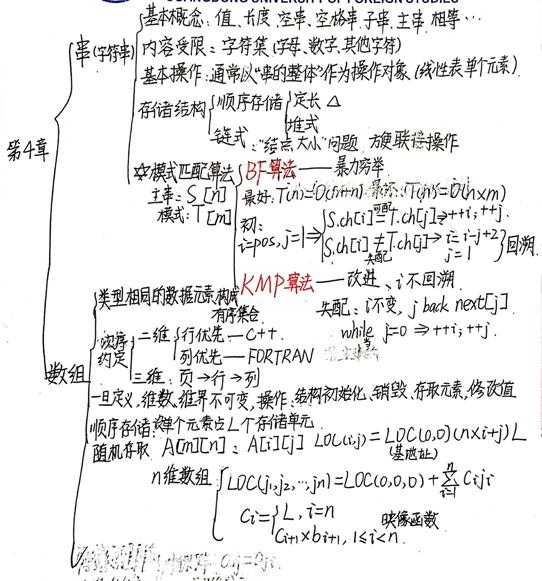 第4章
串(字符串)
基本概念：值、长度、空串、空格串、子串、主串、相等…
内容受限：字符集(字母、数字、其他字符)
基本操作：通常以"串的整体"作为操作对象(线性表单个元素)
存储结构
顺序存储
定长 △
堆式
链式："结点大小"问题 方便联接操作
☆模式匹配算法
主串：S[n]
模式：T[m]
BF算法——暴力穷举
最好：T(n)=O(n+m) 最坏：T(n)=O(n×m)
初：
i=pos, j=1⇒
S.ch[i]=T.ch[j]→++i, ++j
匹配
S.ch[i]≠T.ch[j]→i=i-j+2
失配
j=1
回溯
KMP算法——改进、i不回溯
失配：i不变, j back next[j]
while j=0 ⇒ ++i; ++j.
数组
类型相同的数据元素构成
有序集合
次序
约定
二维
行优先—C++
列优先—FORTRAN
三维：页→行→列
一旦定义,维数、维界不可变,操作：结构初始化、销毁、存取元素、修改值
顺序存储：单个元素占L个存储单元
随机存取 A[m][n]：A[i][j] LOC(i,j)=LOC(0,0)(n×i+j)L
(基地址)
n维数组
LOC(j₁,j₂,…,jn)=LOC(0,0,0)+∑ⁿᵢ₌₁ Ciji
Ci=
L, i=n
Ci+1×bi+1, 1≤i<n
映像函数
aij=aji.